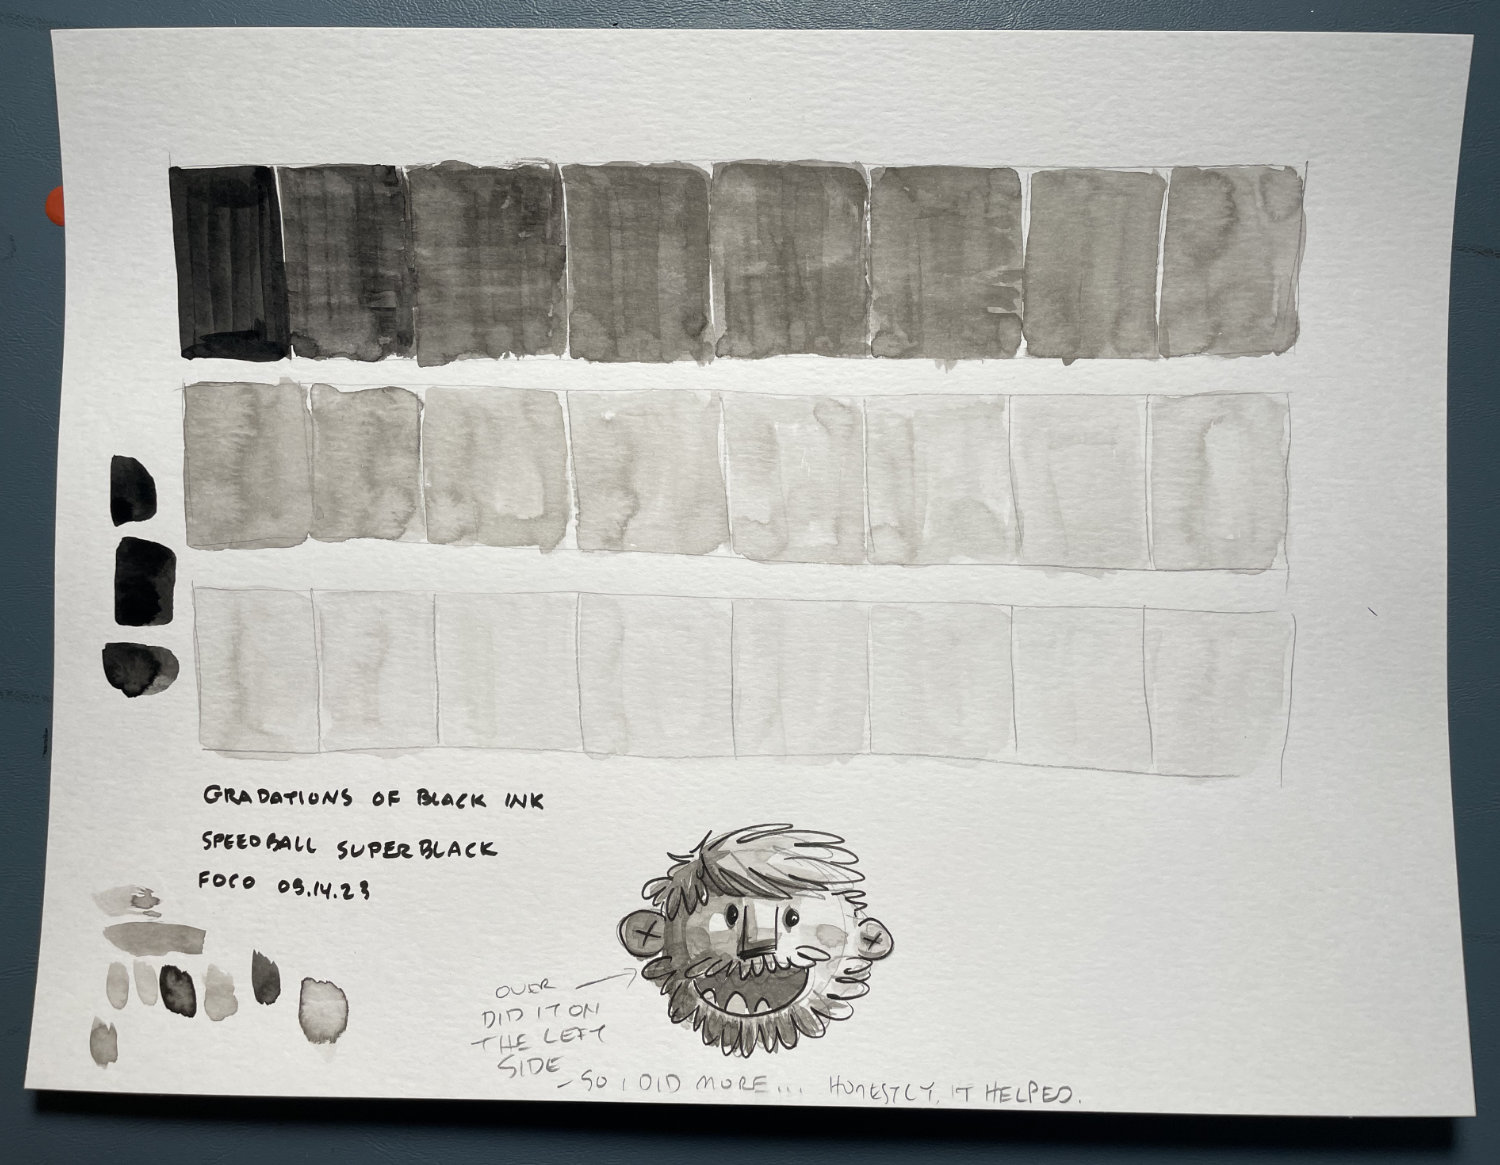 GRADATIONS OF BLACK INK
SPEEDBALL SUPERBLACK
FOCO 09.14.23
OVER
DID IT ON
THE LEFT
SIDE
- SO I DID MORE... HONESTLY, IT HELPED.